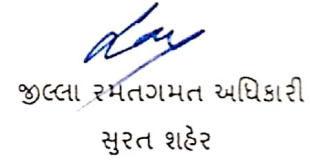 જીલ્લા રમતગમત અધિકારી
સુરત શહેર